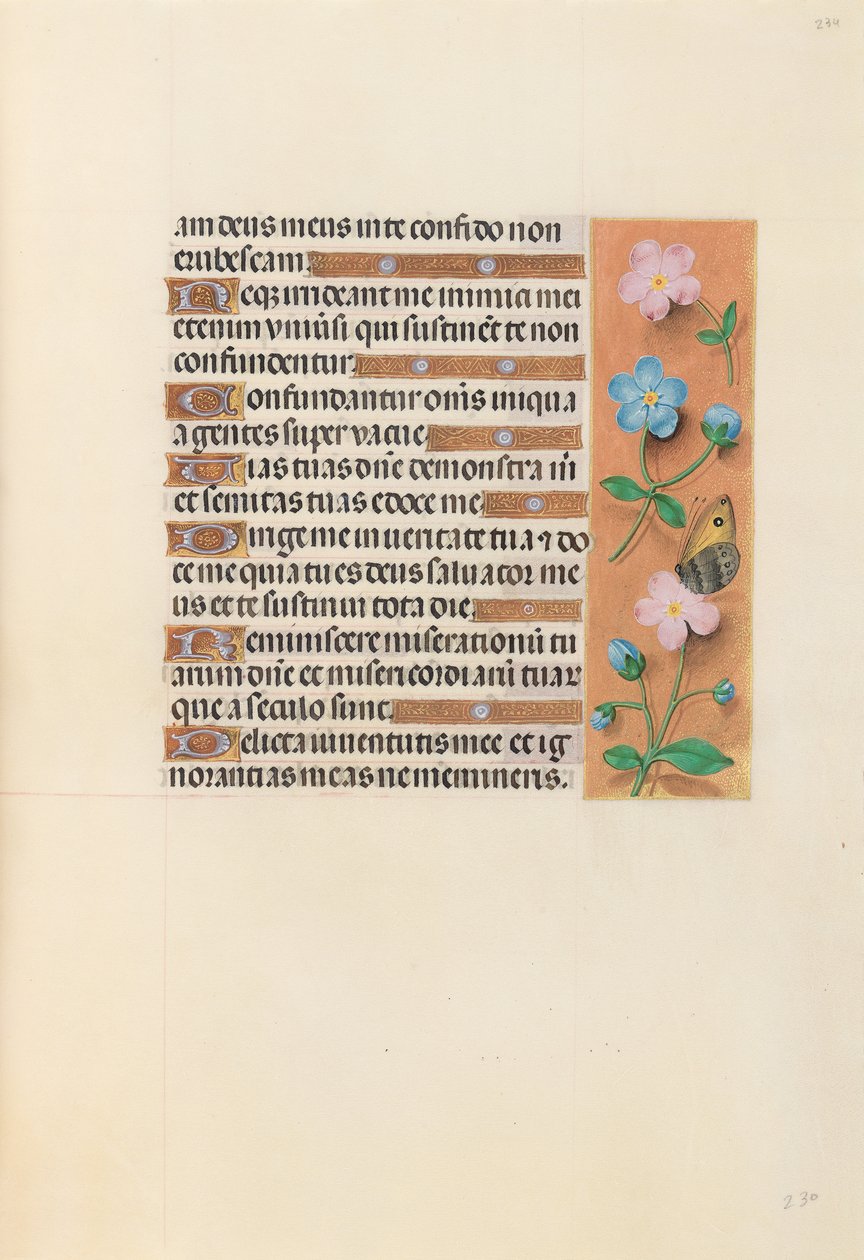 234
am deus meus in te confido non
erubescam.
Neqȝ irrideant me inimici mei
etenim vniūsi qui sustinēt te non
confundentur.
Confundantur om̄s iniqua
agentes super vacue.
Uias tuas dn̄e demonstra m̄
et semitas tuas edoce me.
Dirige me in veritate tua ⁊ do
ce me quia tu es deus saluator me
us et te sustinui tota die.
Reminiscere miserationū tu
arum dn̄e et misericordiarū tuar
que a seculo sunt.
Delicta iuuentutis mee et ig
norantias meas ne memineris.
230